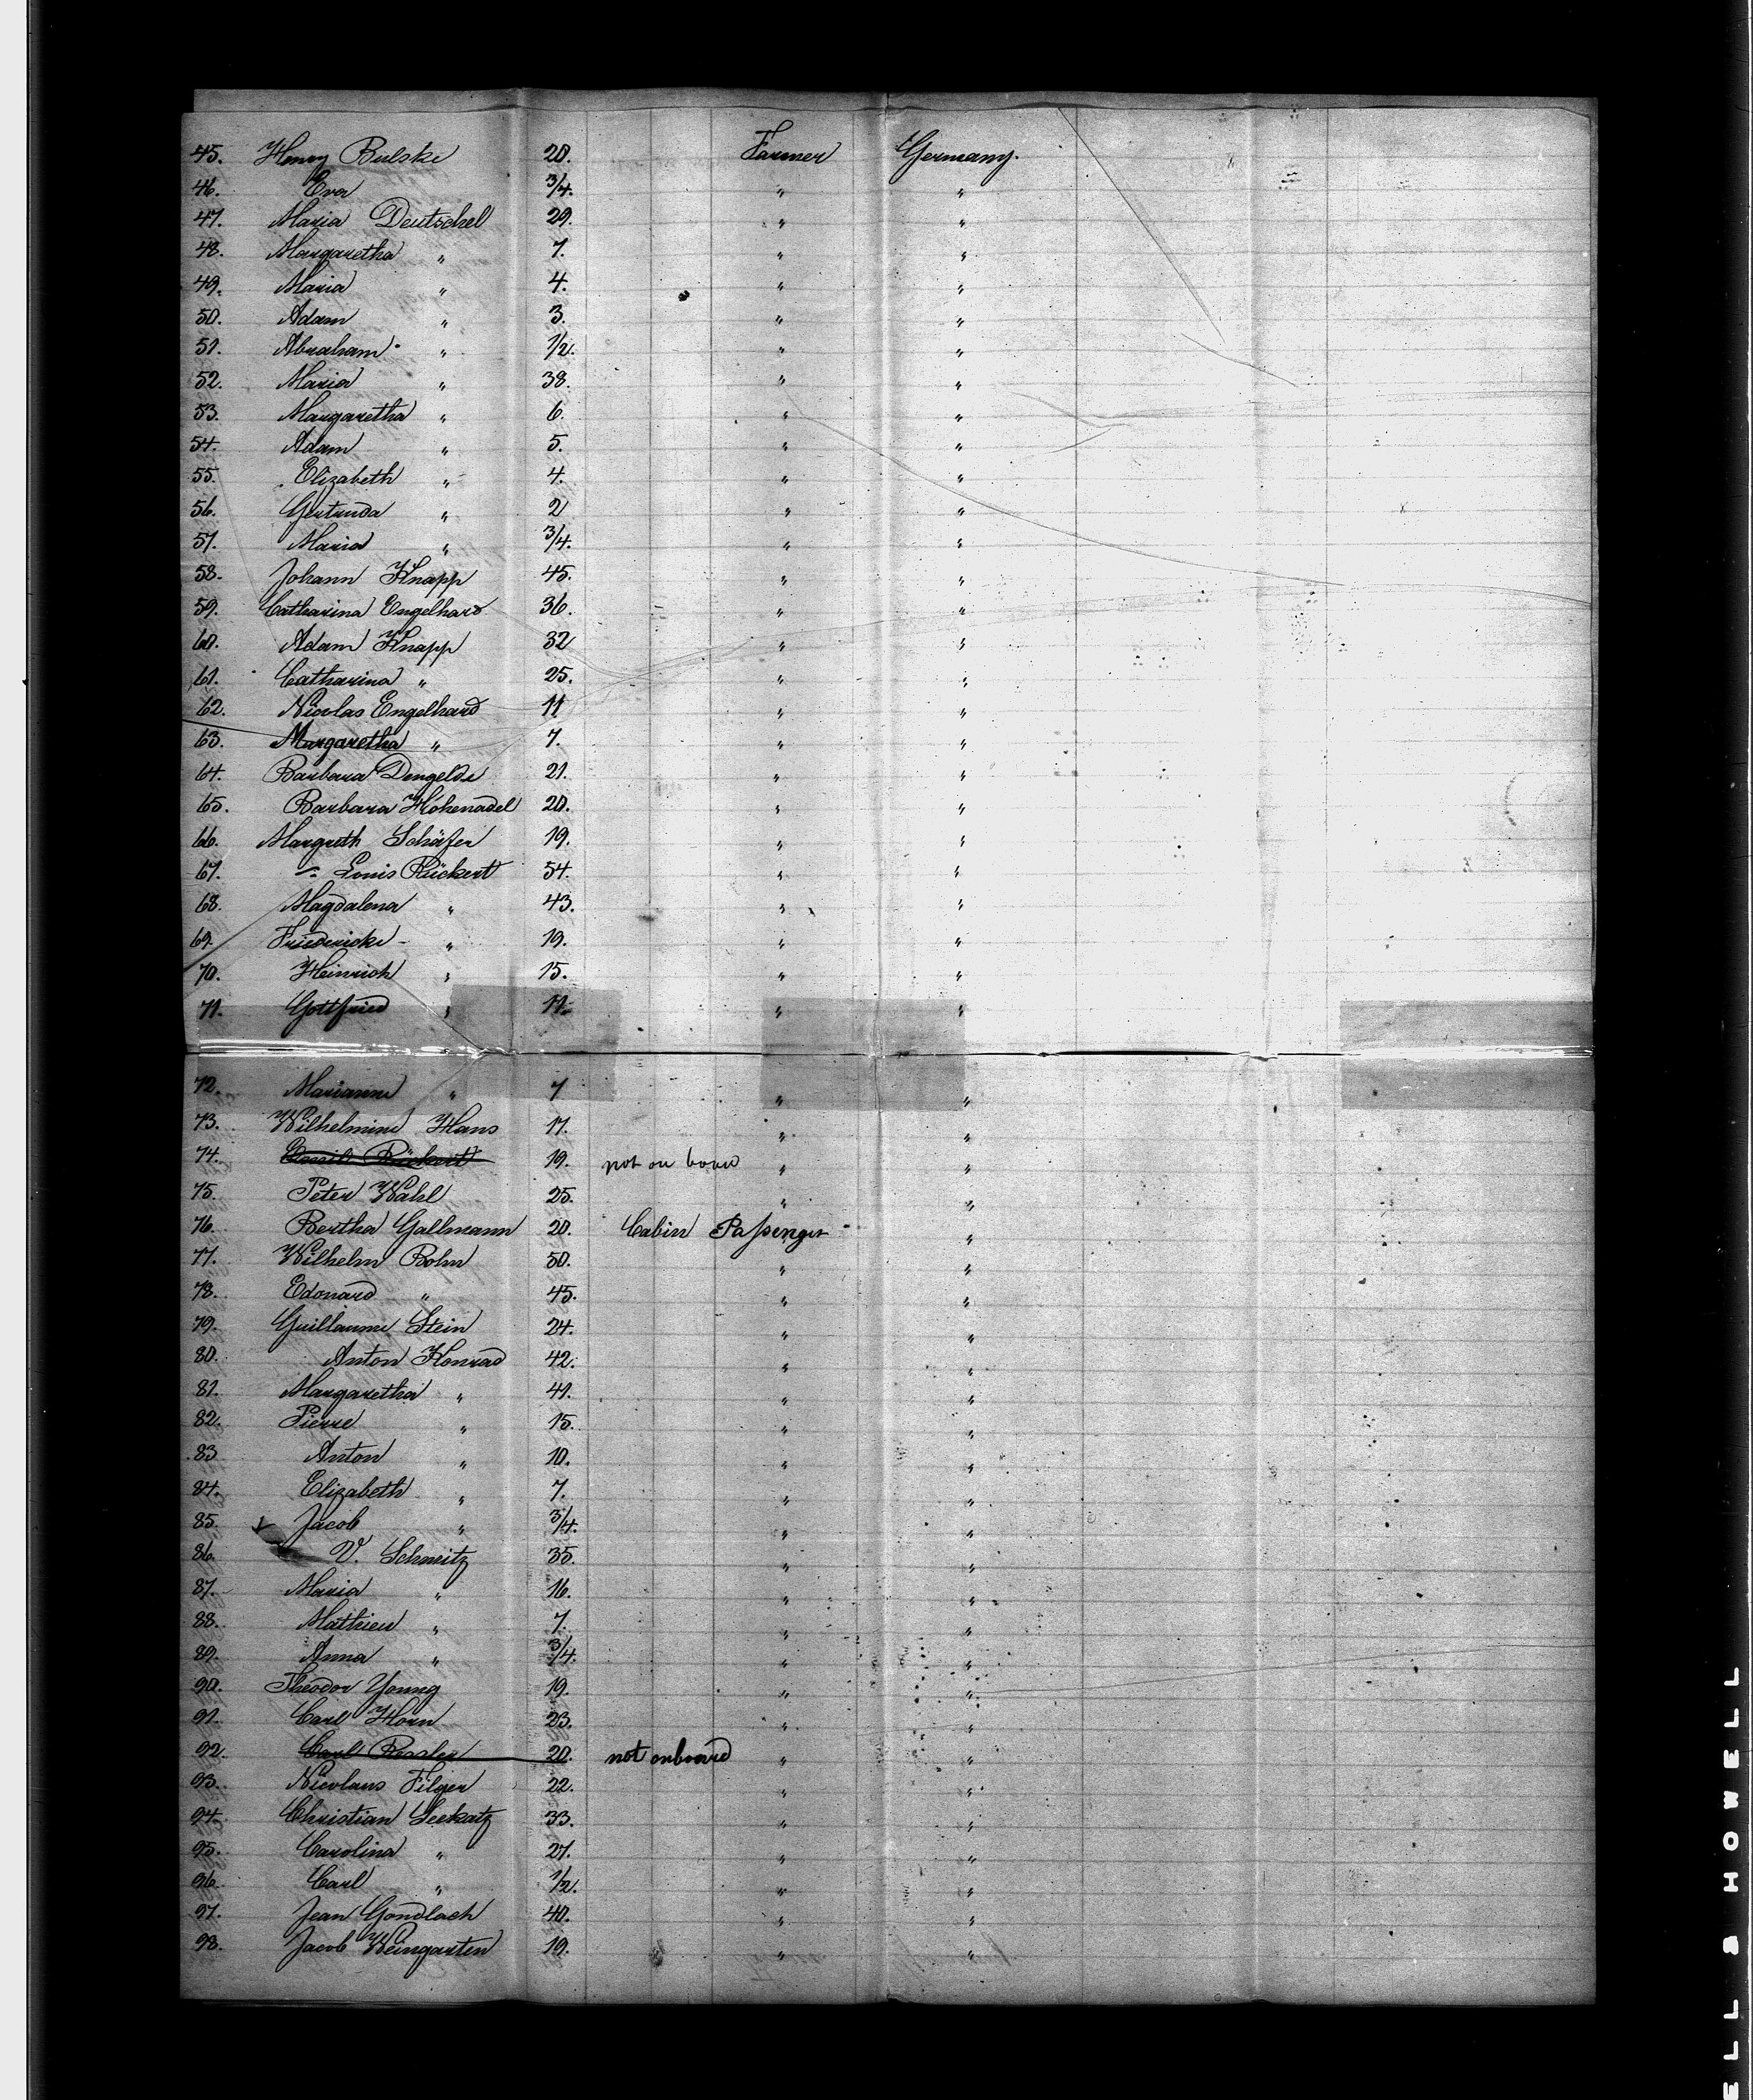 45. Henry Bulske 20. Farmer Germany.
46. Eva 3/4. " "
47. Maria Deutschel 29. " "
48. Margaretha " 7. " "
49. Maria " 4. " "
50. Adam " 3. " "
51. Abraham " 1/2. " "
52. Maria " 38. " "
53. Margaretha " 6. " "
54. Adam " 5. " "
55. Elizabeth " 4. " "
56. Gertruda " 2 " "
57. Maria " 3/4. " "
58. Johann Knapp 45. " "
59. Catharina Engelhard 36. " "
60. Adam Knapp 32 " "
61. Catharina " 25. " "
62. Nicolas Engelhard 11 " "
63. Margaretha " 7. " "
64. Barbara Dengelde 21. " "
65. Barbara Hohenadel 20. " "
66. Margreth Schäfer 19. " "
67. Louis Rückert 54. " "
68. Magdalena " 43. " "
69. Friedericke " 19. " "
70. Heinrich " 15. " "
71. Gottfried " 11. " "
72. Marianne " 7 " "
73. Wilhelmine Hans 17. " "
74. Rückert 19. not on board " "
75. Peter Wahl 25. " "
76. Bertha Gallmann 20. Cabin Passenger "
77. Wilhelm Bohn 50. " "
78. Edouard " 45. " "
79. Guillaume Stein 24. " "
80. Anton Konrad 42. " "
81. Margaretha " 41. " "
82. Pierre " 15. " "
83 Anton " 10. " "
84. Elizabeth " 7. " "
85. Jacob " 3/4. " "
86. V. Schmitz 35. " "
87. Maria " 16. " "
88. Mathieu " 7. " "
89. Anna " 3/4. " "
90. Theodor Young 19. " "
91. Carl Horn 23. " "
92. Carl Ressler 20. not onboard " "
93. Nicolaus Filger 22. " "
94. Christian Seekatz 33. " "
95. Carolina " 27. " "
96. Carl " 1/2. " "
97. Jean Gondlach 40. " "
98. Jacob Weingarten 19. " "
ELL & HOWELL